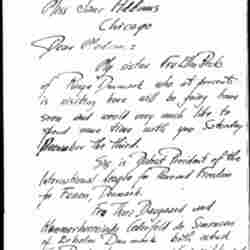 Miss Jane Addams
Chicago
Dear Madam:
My sister Fru Ella
of Ringe Denmark who at present
is visiting here will be going home
soon and would very much like to
spend some time with you Saturday
December the third.
She is District President of the
International League for Peace and Freedom
for Denmark.
Fru Thora Daugaard and
of Denmark both